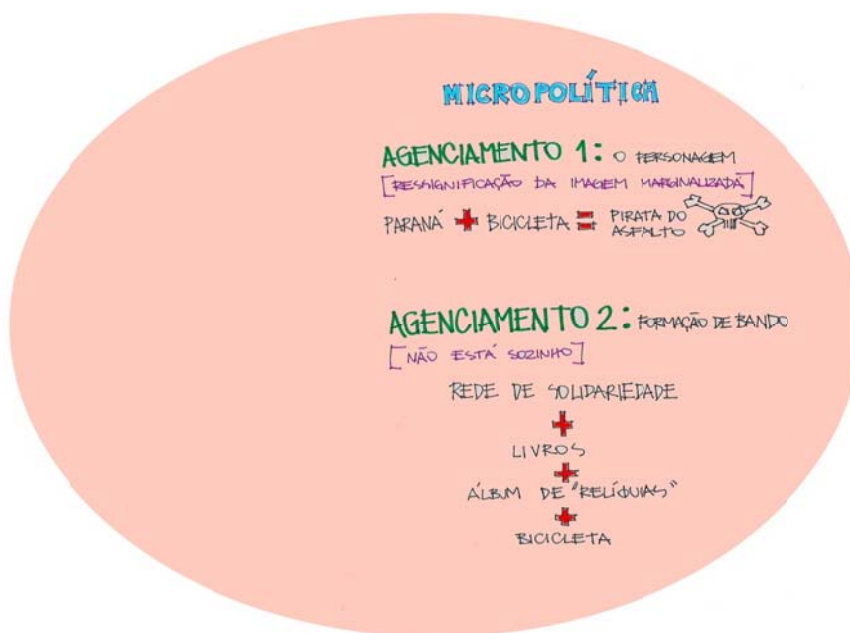 MICROPOLÍTICA
AGENCIAMENTO 1: O PERSONAGEM
[RESSIGNIFICAÇÃO DA IMAGEM MARGINALIZADA]
PARANÁ + BICICLETA = PIRATA DO
ASFALTO
AGENCIAMENTO 2: FORMAÇÃO DE BANDO
[NÃO ESTÁ SOZINHO]
REDE DE SOLIDARIEDADE
+
LIVROS
+
ÁLBUM DE "RELÍQUIAS"
+
BICICLETA